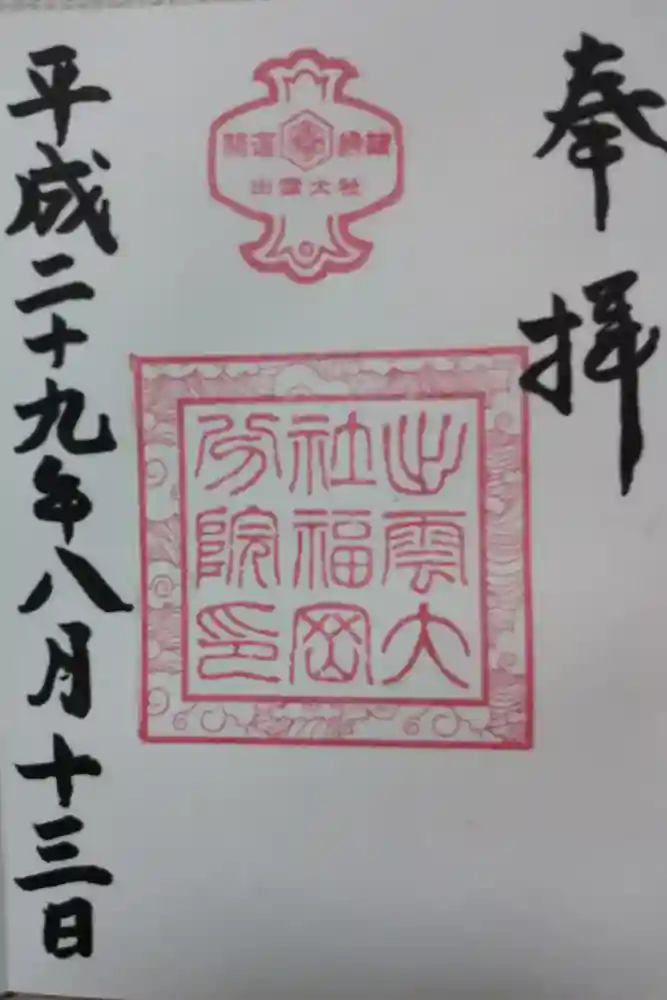 奉拝
開運
出雲大社
出雲大
社福岡
分院印
平成二十九年八月十三日